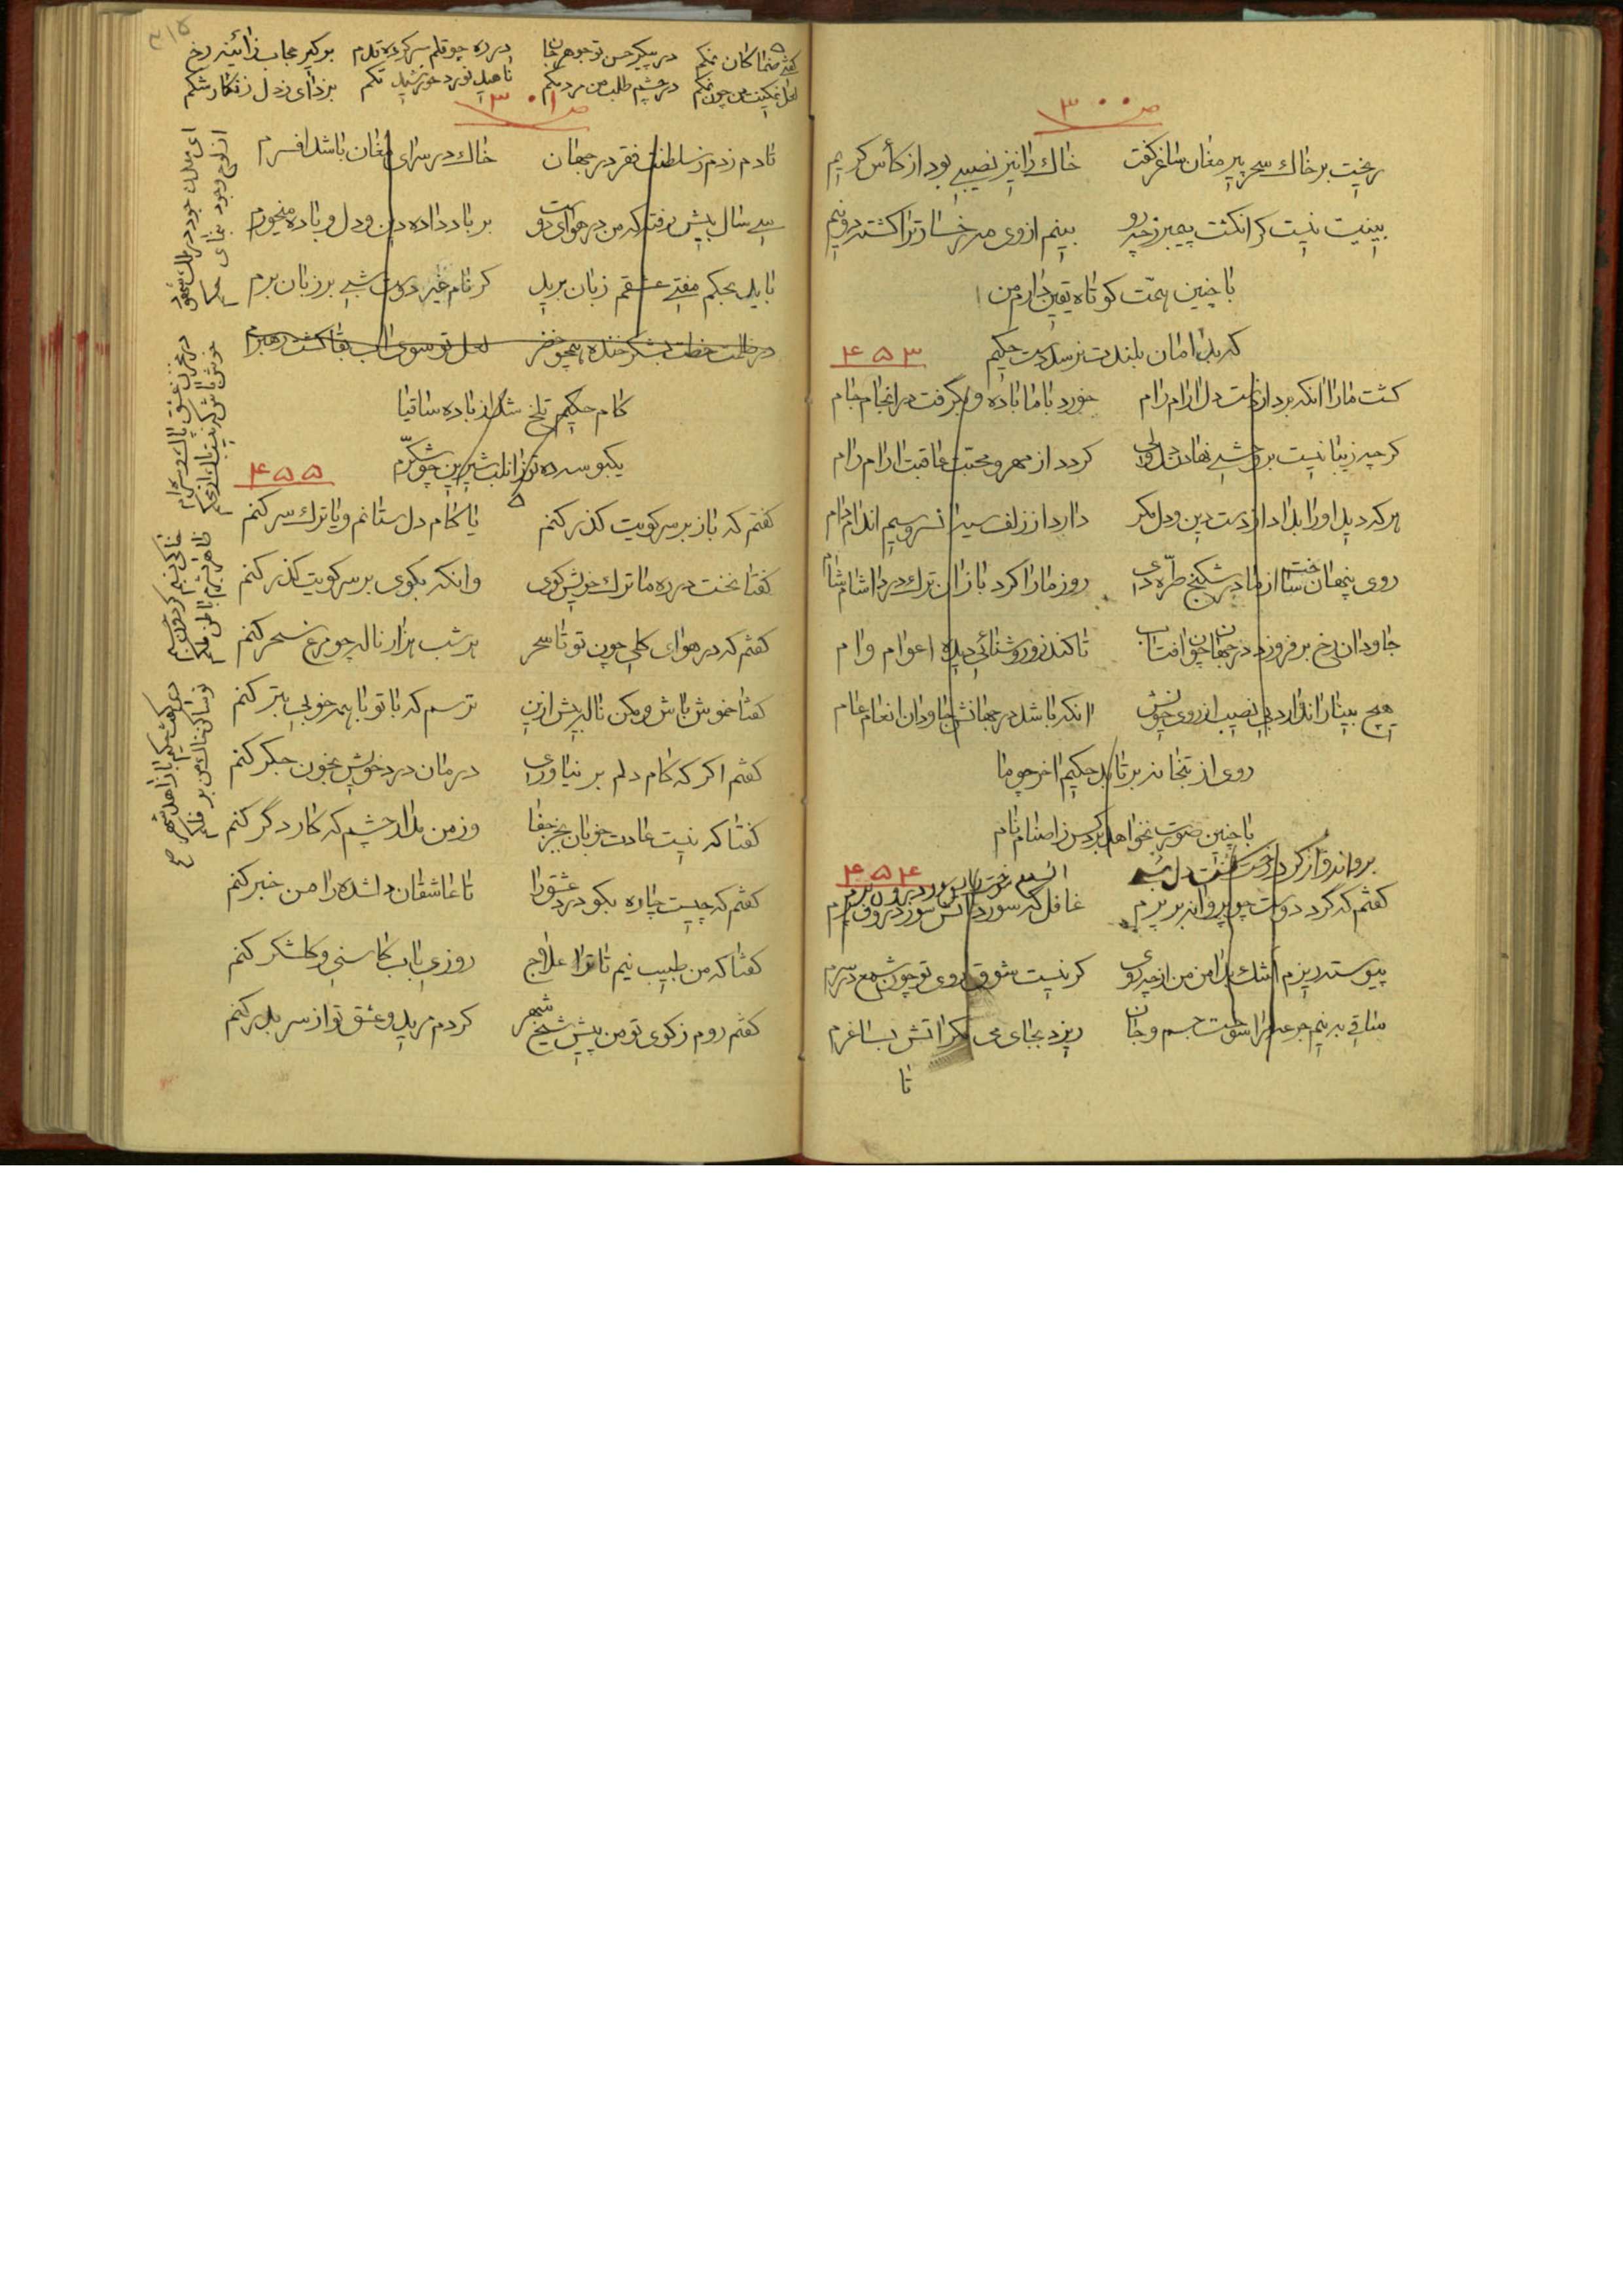 ص ۳۰۰
ریخت بر خاک سحر پیر مغان ساغر و گفت خاک را نیز نصیبی بود از کأس کریم
بینیت نیست گر انگشت پیمبر زچه رو بینم از وی مه رخسار ترا گشته دو نیم
با چنین همت کوتاه یقین دارم من
که بدامان بلندت نرسد دست حکیم
۴۵۳
کشت ما را آنکه برد از دست دل آرام رام خورد با ما باده و بگرفت در انجام جام
گرچه زیبا نیست بر وحشی نهادن دل ولی گردد از مهر و محبت عاقبت آرام رام
هر که دید او را بداد از دست دین و دل مگر دارد از زلف سیه آن سرو سیم اندام دام
روی پنهان ساخت از ما در شکنج طره‌ای روز ما را کرد باز آن ترک درد آشام شام
جاودان رخ بر فروزد در جهان چون آفتاب تا کند زو روشنائی دیده اعوام وام
هیچ بیتاب اندارد بی نصیب از روی خویش آنکه باشد در جهانش جاودان انعام عام
روی از بتخانه برتابد حکیم آخر چو ما
با چنین صورت نخواهد برد کس ز اصنام نام
۴۵۴
گفتم که گرد دوست چو پروانه بر پرم غافل که سوزد آتش
پیوسته ریزم اشک بدامن من از چه روی گر نیست شوق روی تو چون شمع در سرم
ساقی به نیم جرعه مرا سوخت جسم و جان ریزد بجای می مگر آتش بساغرم
تا
۳۱۵
گفتی صنما کان نمکم در پیکر حسن تو جوهر جان در ره چو قلم سر کرده قدم برگیر حجاب ز آئینه رخ
لعل نمکینت من چون نمکم در چشم طلب من مردمکم تا هیل نورد خورشید تکم بزدای ز دل زنگار شکم
ص ۳۰۱
تا دم زدم ز سلطنت فقر در جهان خاک در سرای مغان باشد افسرم
سی سال بیش رفته که من در هوای دوست بر باد داده دین و دل و باده میخورم
باید بحکم مفتی عشقم زبان برید گر نام غیر دوست شبی بر زبان برم
در ظلمت خطت بشکر خنده همچو خضر لعل تو سوی آب بقا گشت رهبرم
کام حکیم تلخ شد از باده ساقیا
یکبوسه ده تو زان لب شیرین چو شکرم
۴۵۵
گفتم که باز بر سر کویت گذر کنم یا کام دل ستانم و یا ترک سر کنم
گفتا نخست در ره ما ترک خویش گوی وانگه بگوی بر سر کویت گذر کنم
گفتم که در هوای گلی چون تو تا سحر هر شب هزار ناله چو مرغ سحر کنم
گفتا خموش باش و مکن ناله بیش ازین ترسم که با تو با همه خوبی بتر کنم
گفتم اگر که کام دلم بر نیاوری درمان درد خویش بخون جگر کنم
گفتا که نیست عادت خوبان بجز جفا وز من مدار چشم که کار دگر کنم
گفتم که چیست چاره بگو درد عشق را تا عاشقان دلشده را من خبر کنم
گفتا که من طبیب نیم تا ترا علاج روزی بآب کاسنی و گلشکر کنم
گفتم روم ز کوی تو من پیش شیخ شهر گردم مرید و عشق تو از سر بدر کنم